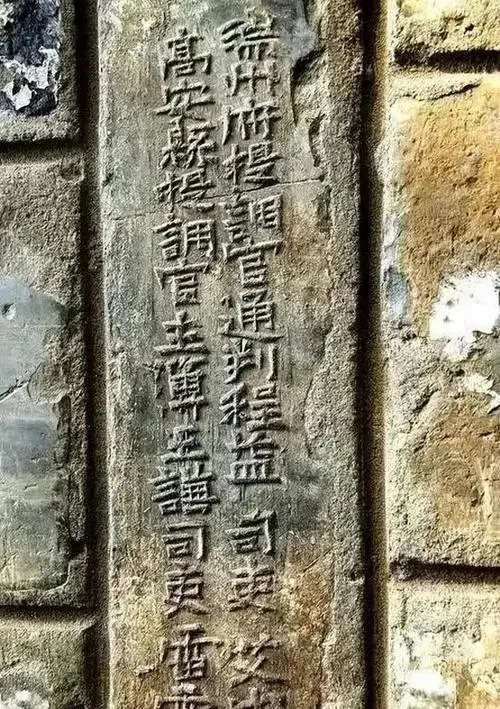 瑞州府提調官通判程益 司吏 艾
高安縣提調官主簿王謙 司吏 雷